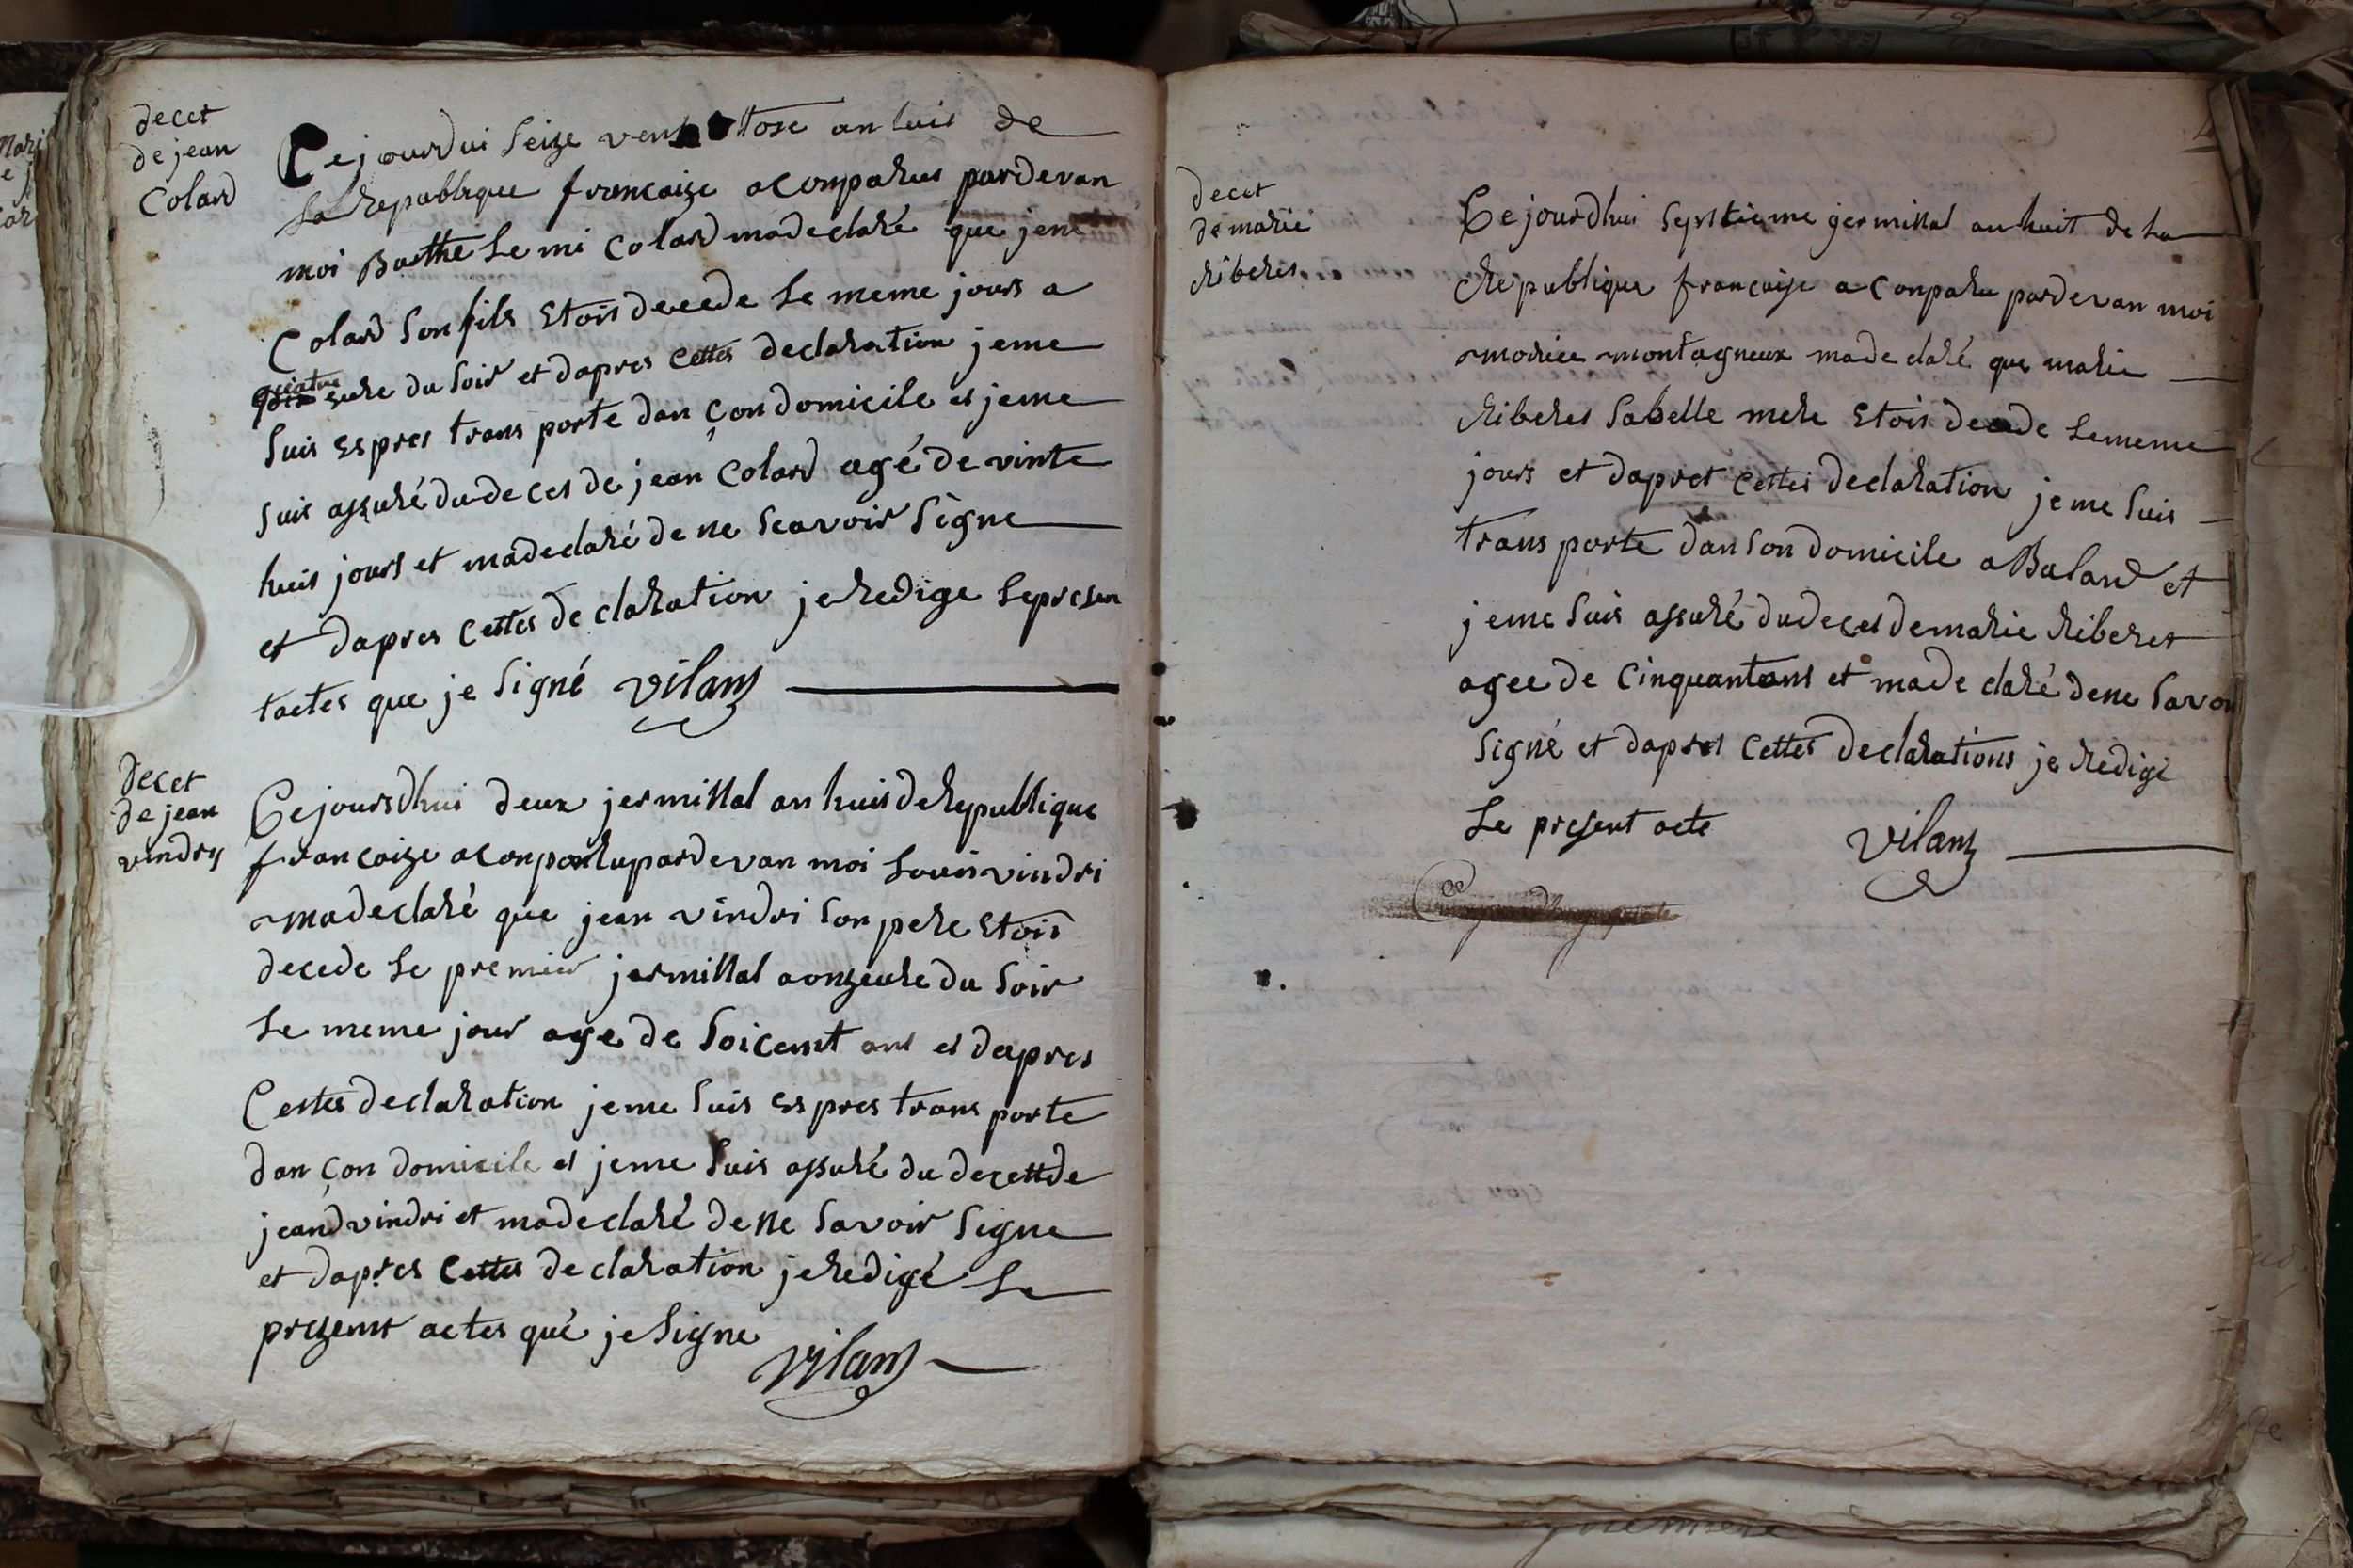 decet
de jean
Colard
Cejourdui Seize vent tose an huis de
La Republique francaize aconparus pardevan
moi Barthelemi Colard madeclaré que jene
Colard Son fils Etois decede Le meme jours a
quatre eure du Soir et dapres Cettes declaration jeme
Suis Espres trans porte dan çon domicile es jeme
Suis assuré dudeces de jean Colard agé de vinte
huis jours et madeclaré de ne Scavoir Signe
et dapres cettes declaration je Redige Lepresen
tactes que je Signé Vilans
Decet
de jean
vindry
Cejoursdhui deux jerminal an huis de Republique
francaize aconparu pardevan moi Louis vindri
madeclaré que jean vindri Son pere Etois
decede Le premier jerminal a onzeure du Soir
Le meme jour age de Soicent ans es dapres
Cestes declaration jeme Suis Espres trans porte
dan çon domicile es jeme Suis assuré du decettde
jeand vindri et madeclaré de ne Savoir Signe
et dapres Cettes declaration je Redigé Le
prezent actes qué je Signe
Vilans
decet
de marie
Riberes
Cejourdhui Septtieme germinal an huit de La
Republique francaise a Conparu pardevan moi
moriee montagneux madeclaré que marie
Riberes Sabelle mere Etois decede Lememe
jours et dapret Cettes declaration jeme Suis
trans porte dan Son domicile a Baland et
jeme Suis assuré dudeces demarie Riberes
agee de Cinquantans et madeclaré dene Savoir
Signé et dapres Cettes declarations je Redigé
Le present acte Vilans